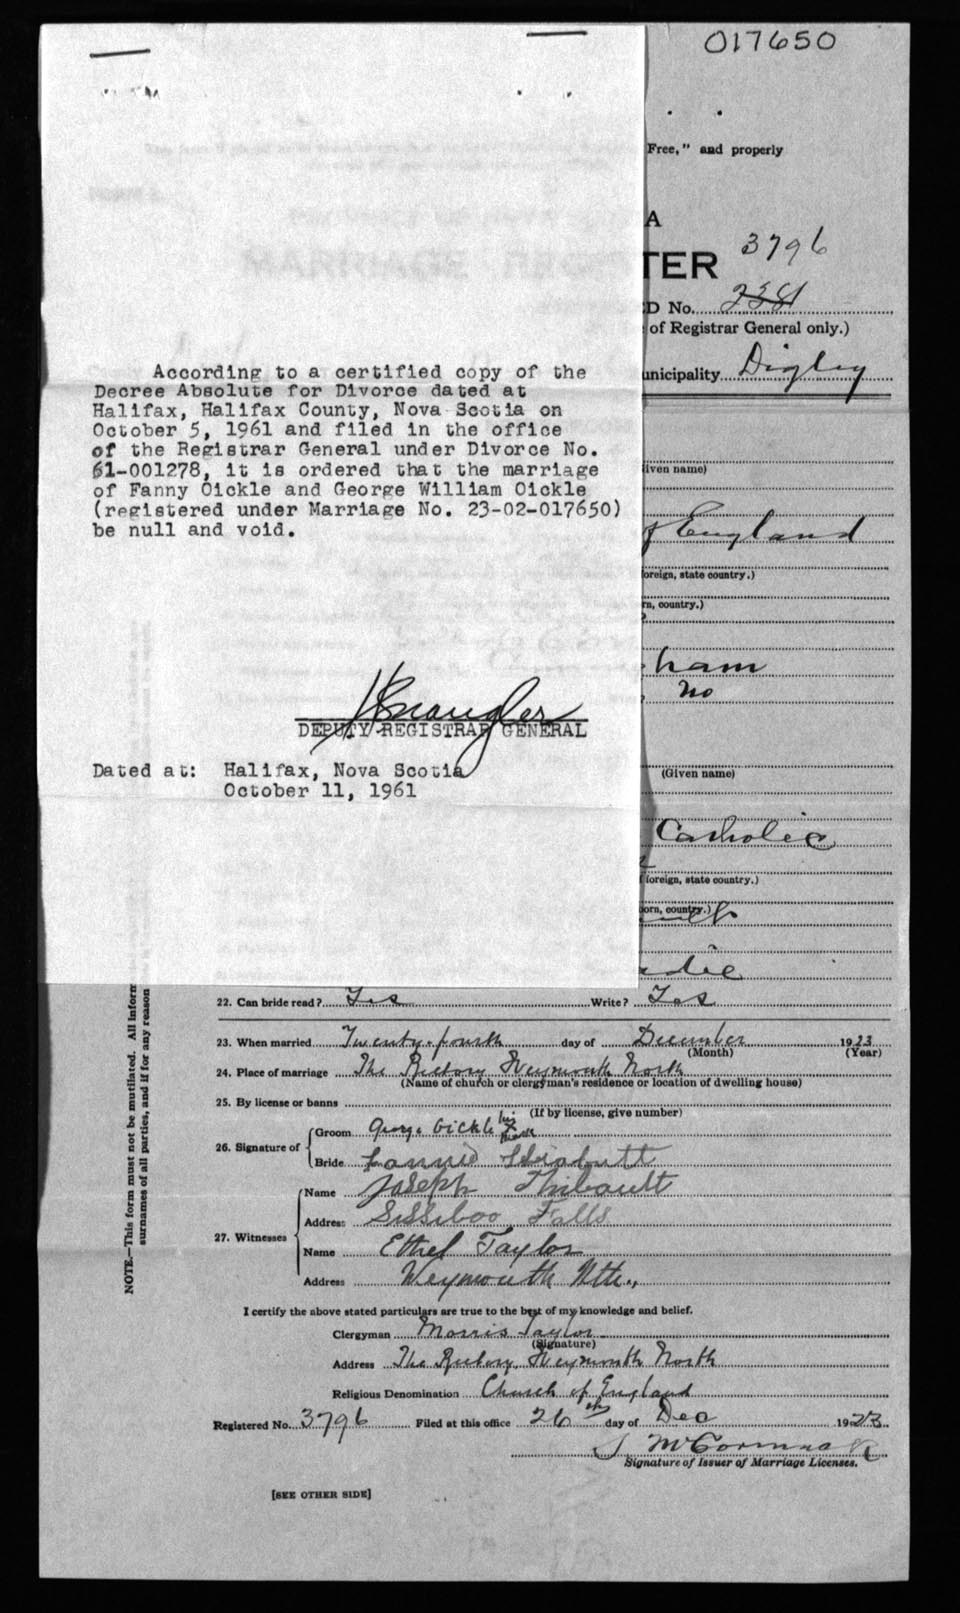 017650
Free," and properly
A
TER 3796
D No. 2381
of Registrar General only.)
unicipality Digby
According to a certified copy of the
Decree Absolute for Divorce dated at
Halifax, Halifax County, Nova Scotia on
October 5, 1961 and filed in the office
of the Registrar General under Divorce No.
61-001278, it is ordered that the marriage
of Fanny Oickle and George William Oickle
(registered under Marriage No. 23-02-017650)
be null and void.
iven name)
f England
oreign, state country.)
rn, country.)
ham
no
DEPUTY REGISTRAR GENERAL
Dated at: Halifax, Nova Scotia
October 11, 1961
(Given name)
Catholic
foreign, state country.)
orn, country.)
die
22. Can bride read? Yes Write? Yes
23. When married Twenty-fourth day of December 1923
(Month) (Year)
24. Place of marriage The Rectory Weymouth North
(Name of church or clergyman's residence or location of dwelling house)
25. By license or banns
(If by license, give number)
26. Signature of Groom George Oickle his X mark
Bride Fannie Thibault
27. Witnesses Name Joseph Thibault
Address Sissiboo Falls
Name Ethel Taylor
Address Weymouth Nth.,
I certify the above stated particulars are true to the best of my knowledge and belief.
Clergyman Morris Taylor
(Signature)
Address The Rectory, Weymouth North
Religious Denomination Church of England
Registered No. 3796 Filed at this office 26th day of Dec 1923
J McCormack
Signature of Issuer of Marriage Licenses.
[SEE OTHER SIDE]
NOTE.—This form must not be mutilated. All inform
surnames of all parties, and if for any reason